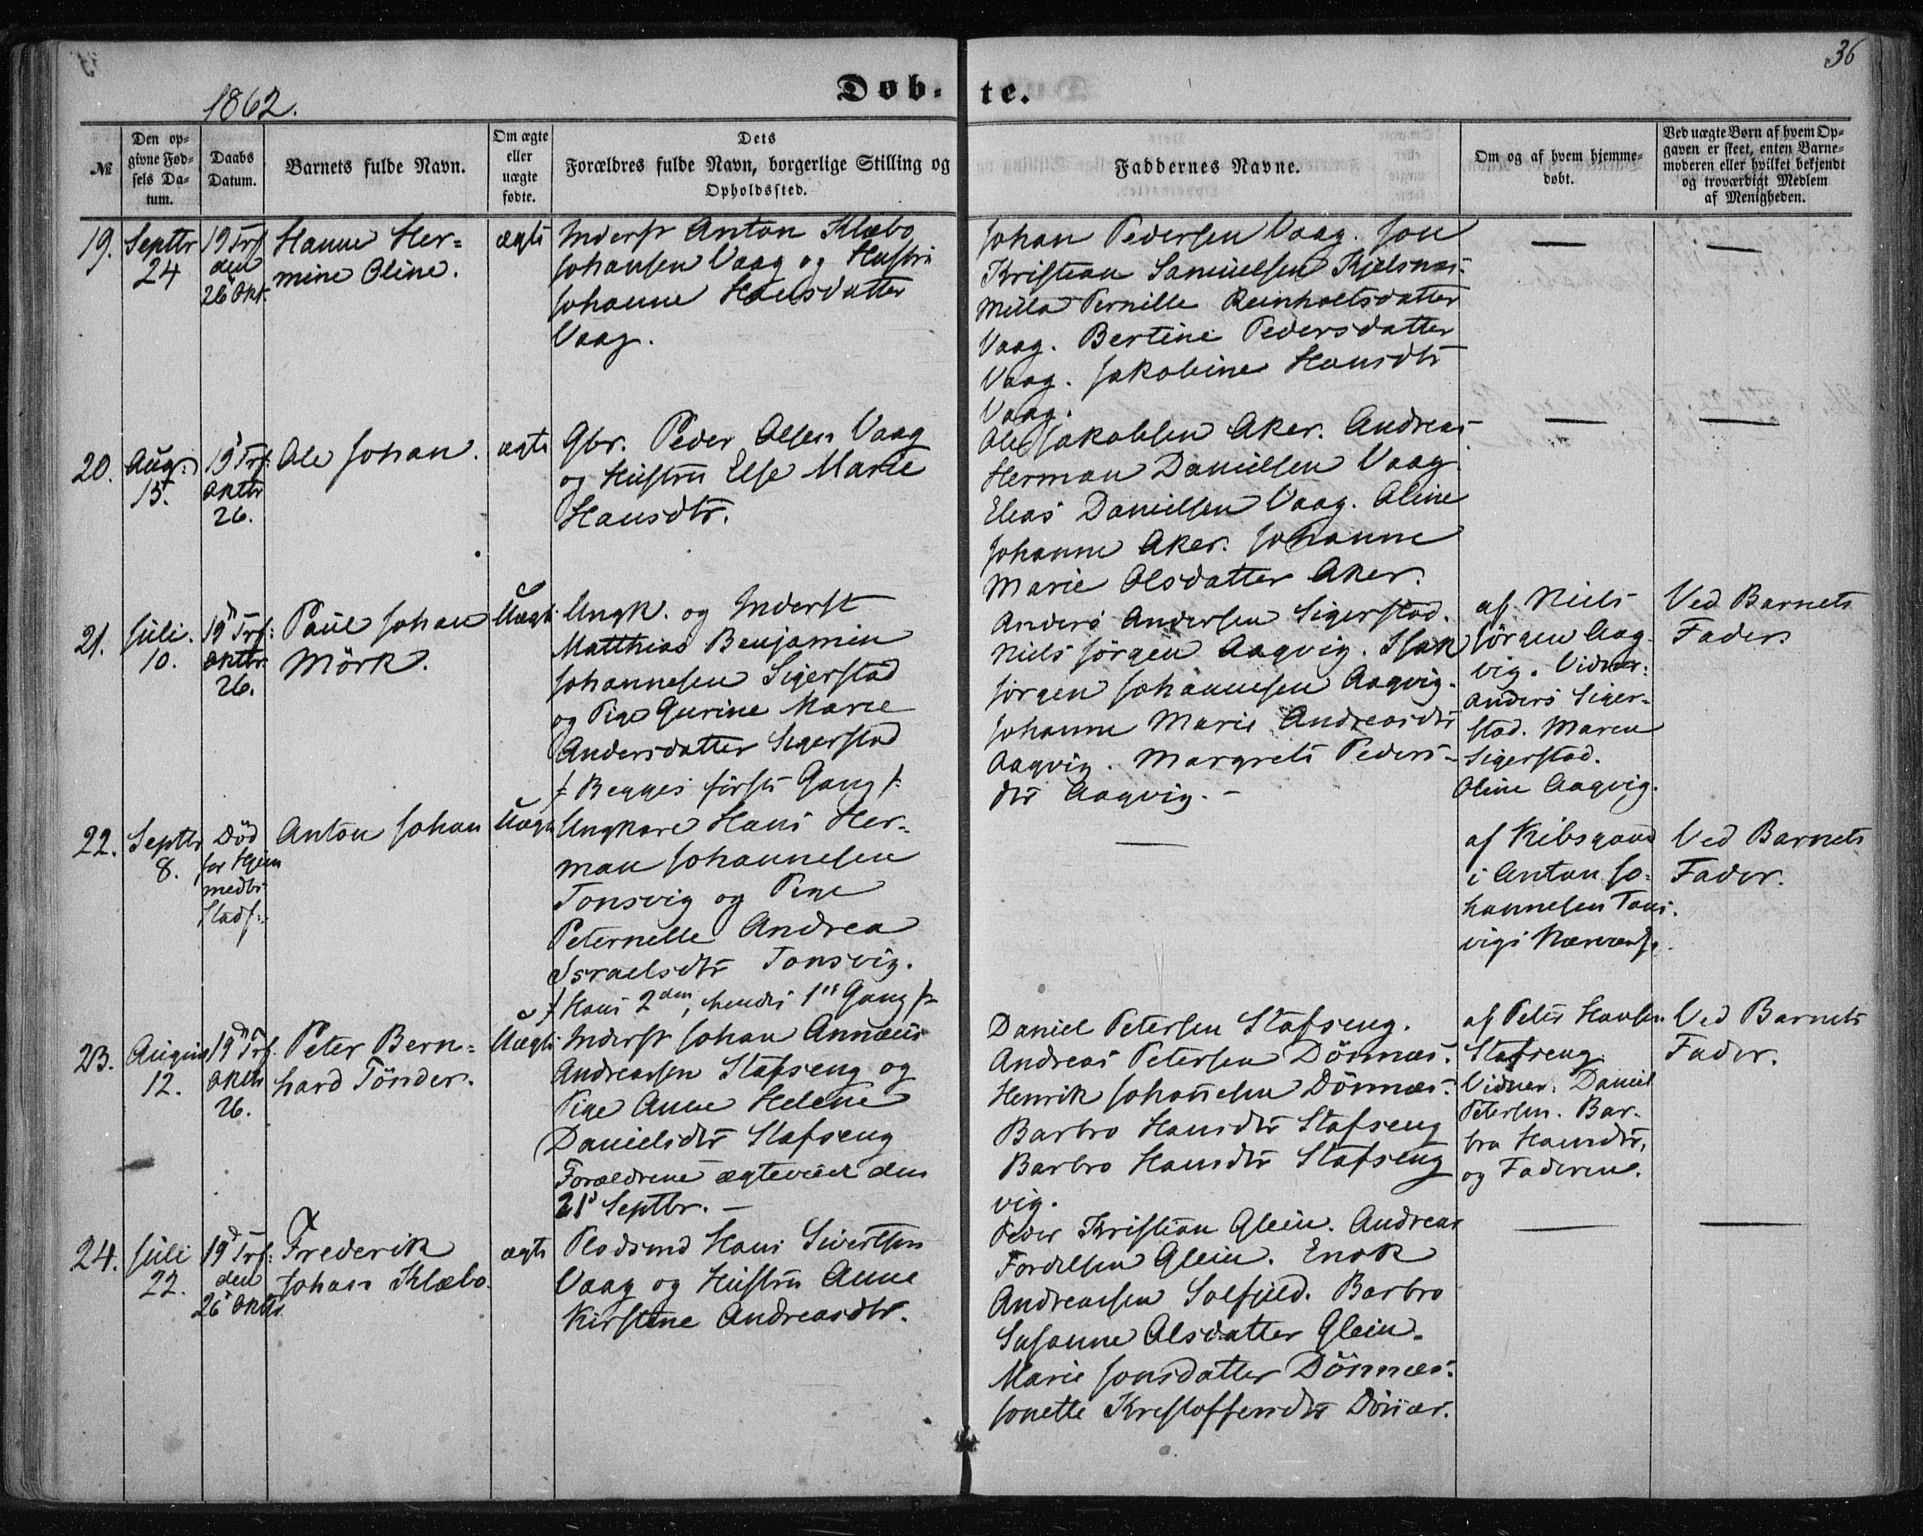 36
1862.
Døb-te.
№
Den op-
givne Fød-
sels Da-
tum.
Daabs
Datum.
Barnets fulde Navn.
Om ægte
eller
uægte
fødte.
Dets
Forældres fulde Navn, borgerlige Stilling og
Opholdssted.
Faddernes Navne.
Om og af hvem hjemme-
døbt.
Ved uægte Børn af hvem Op-
gaven er skeet, enten Barne-
moderen eller hvilket bekjendt
og troværdigt Medlem
af Menigheden.
19.
Septbr
24
19 Trf
den
26 Okt.
Hanne Her-
mine Oline.
ægte
Inderst Anton Klæbo
Johansen Vaag og Hustru
Johanne Hansdatter
Vaag.
Johan Pedersen Vaag. Jon
Kristian Samuelsen Kjelsnæs.
Milla Pernille Reinholtsdatter
Vaag. Bertine Pedersdatter
Vaag. Jakobine Hansdtr
Vaag.
—
—
20.
Aug.
15.
19 Trf.
Oktbr
26.
Ole Johan.
ægte
Gbr. Peder Olsen Vaag
og Hustru Else Marie
Hansdtr.
Ole Jakobsen Aker. Andreas
Herman Danielsen Vaag.
Elias Danielsen Vaag. Oline
Johanne Aker. Johanne
Marie Olsdatter Aker.
—
—
21.
Juli.
10.
19 Trf:
Oktbr.
26.
Paul Johan
Mörk.
Uægte
Ungk. og Inderst
Matthias Benjamin
Johannesen Sigerstad
og Pige Gurine Marie
Andersdatter Sigerstad
/: Begges förste Gang :/
Anders Andersen Sigerstad.
Niels Jörgen Aagvig. Isak
Jörgen Johannesen Aagvig.
Johanne Marie Andreasdtr
Aagvig. Margrete Peders-
dtr Aagvig. -
af Niels
Jörgen Aag-
vig. Vidner:
Anders Siger-
stad. Maren
Sigerstad.
Oline Aagvig.
Ved Barnets
Fader.
22.
Septbr
8.
Död
for Hjem
medbr
Stadf:
Anton Johan
Uægte
Ungkarl Hans Her-
man Johannesen
Tonsvig og Pige
Peternelle Andrea
Israelsdtr Tonsvig.
/: Hans 2den, hendes 1ste Gang :/
—
af
i Anton Jo-
hannesen Tons-
vigs
Ved Barnets
Fader.
23.
August
12.
19 Trf
Oktbr
26.
Peter Bern-
hard Tönder.
Uægte
Inderst Johan Annæus
Andreassen Stafseng og
Pige Anne Helene
Danielsdtr Stafseng
Forældrene ægteviet den
21 Septbr. -
Daniel Petersen Stafseng.
Andreas Petersen Dönnæs.
Henrik Johannesen Dönnæs.
Barbro Hansdtr Stafseng
Barbro Hansdtr Stafseng
vig.
af Peter Hansen
Stafseng
Vidner. Daniel
Petersen. Bar-
bra Hansdtr,
og Faderen.
Ved Barnets
Fader.
24.
Juli
22.
19 Trf:
den
26 Oktbr.
Frederik
Johan Klæbo.
ægte
Pladsmd Hans Sivertsen
Vaag og Hustru Anne
Kirstine Andreasdtr.
Peder Kristian Glein. Andreas
Fordelsen Glein. Enok
Andreassen Solfjeld. Barbro
Susanne Olsdatter Glein.
Marie Jonsdatter Dönnæs.
Jonette Kristoffersdtr Dönæs.
—
—